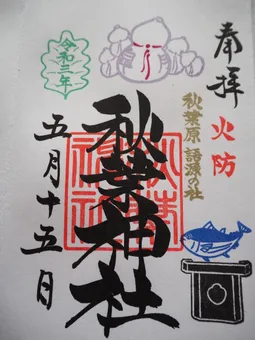 奉拝
火防
秋葉原 語源の社
秋葉神社
令和三年
五月十五日